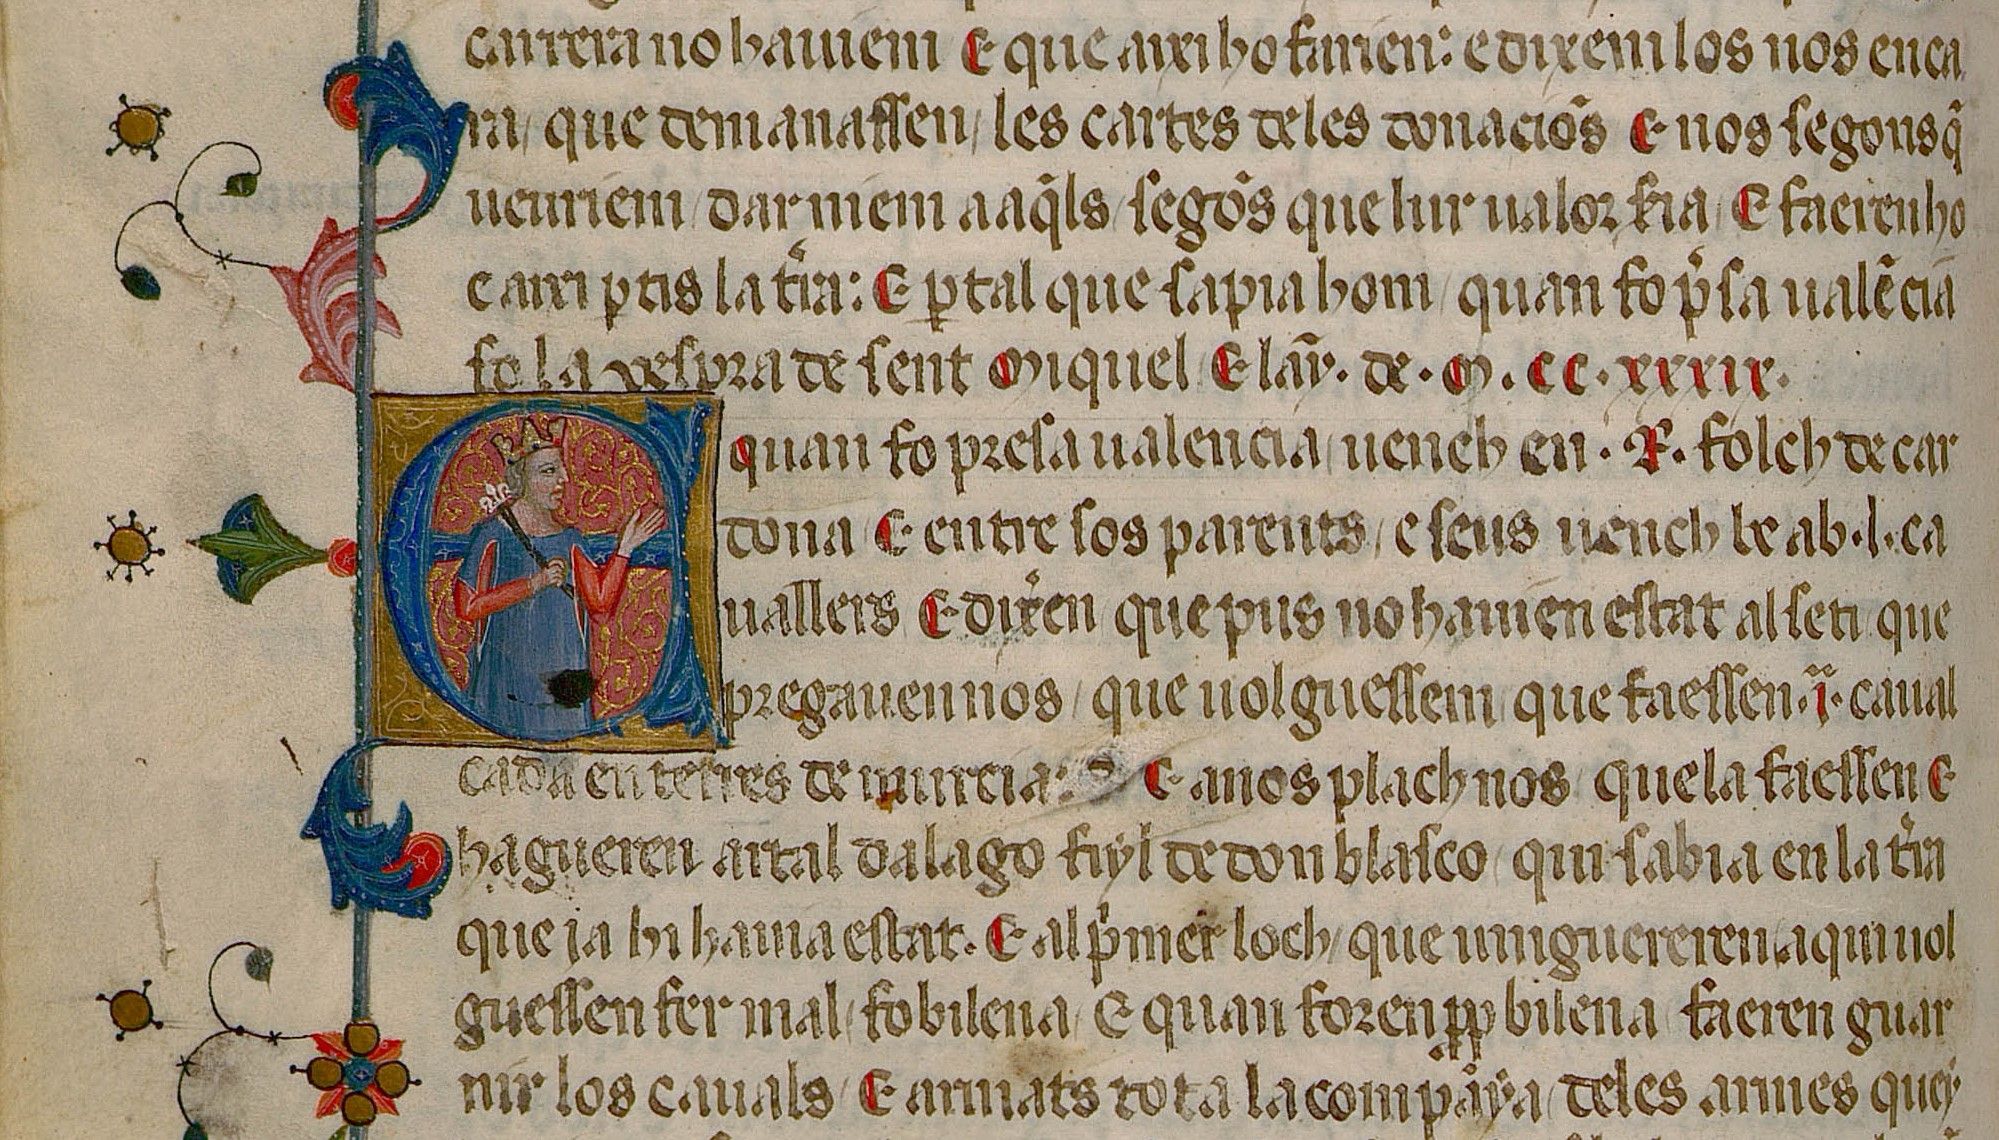 carrera no hauiem E que axi ho farien: e dixem los nos enca
ra, que demanassen, les cartes de les donaciōs E nos segons q̄
ueuriem, dar niem a aq̄ls, segōs que lur ualor fia, E faeren ho
e axi ꝑtis la tr̄a: E ꝑ tal que sapia hom, quan fo p̄sa ualēcia
fo la vespra de sent Miquel, E lāy. de. M. CC. xxxix.
E quan fo presa ualencia, uench en. R. folch de car
dona E entre sos parents, e seus uench be ab .l. ca
uallers E dix̄en que pus no hauien estat al seti que
pregauen nos, que uolguessem que faessen .i.ª caual
cada en terres de murcia. E a nos plach nos, que la faessen E
hagueren artal dalago fiyl de don blasco, qui sabia en la tr̄a
que ia hi hauia estat. E al p̄mer loch, que uinguereren, aqui uol
guessen fer mal, fo bilena, E quan foren ꝓp bilena faeren guar
nir los cauals, E armats tota la compāya, de les armes quey